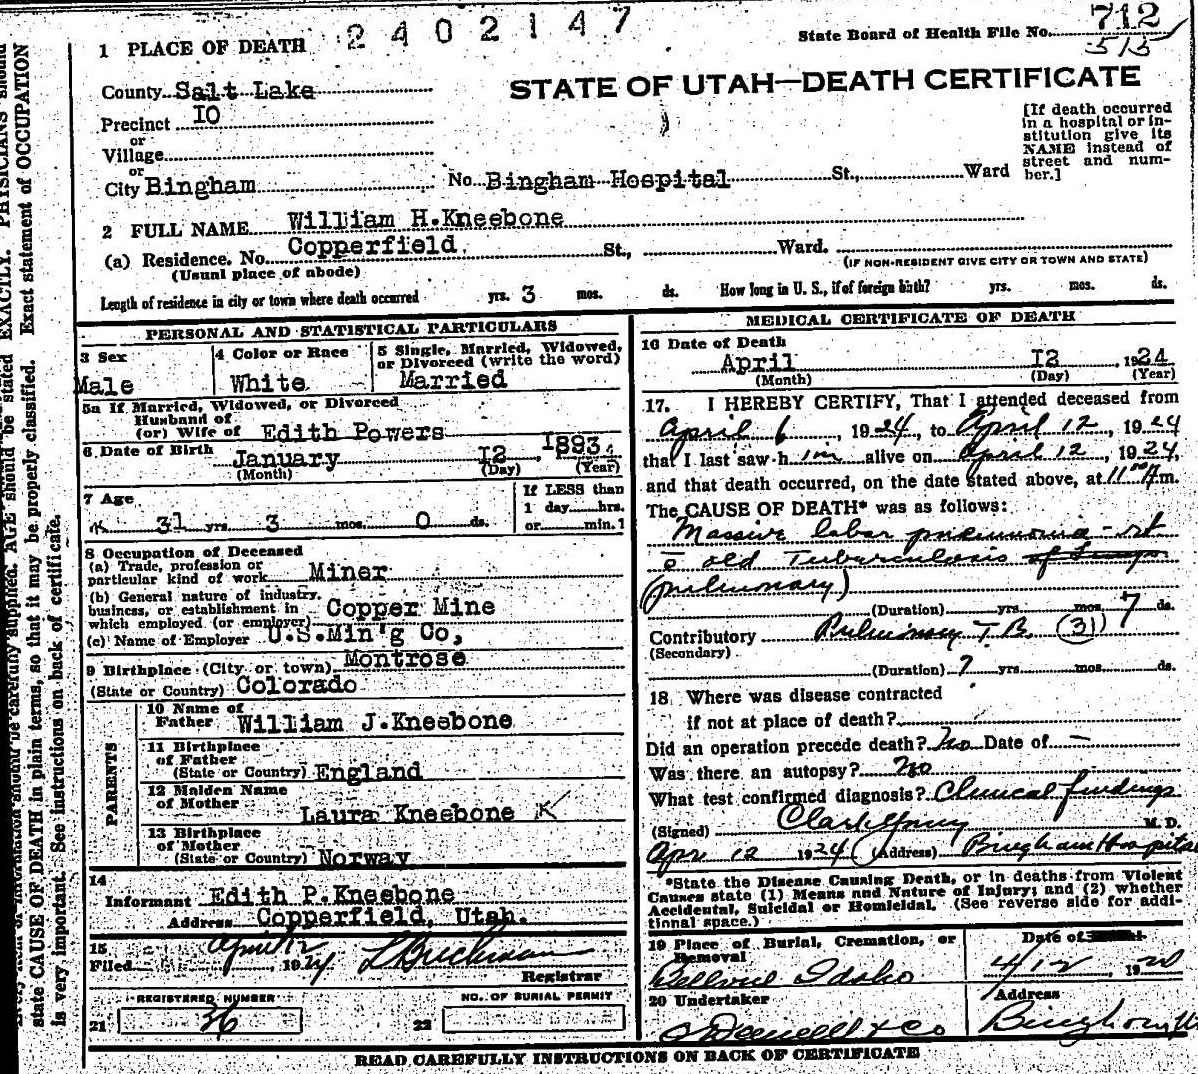 2402147
State Board of Health File No. 712
515
1 PLACE OF DEATH
STATE OF UTAH—DEATH CERTIFICATE
County Salt Lake
Precinct IO
or
Village
or
City Bingham No. Bingham Hospital St., Ward
[If death occurred
in a hospital or in-
stitution give its
NAME instead of
street and num-
ber.]
2 FULL NAME William H.Kneebone
(a) Residence. No. Copperfield. St., Ward.
(Usual place of abode)
(IF NON-RESIDENT GIVE CITY OR TOWN AND STATE)
Length of residence in city or town where death occurred yrs. 3 mos. ds. How long in U. S., if of foreign birth? yrs. mos. ds.
PERSONAL AND STATISTICAL PARTICULARS
3 Sex
Male
4 Color or Race
White
5 Single, Married, Widowed,
or Divorced (write the word)
Married
5a If Married, Widowed, or Divorced
Husband of
(or) Wife of Edith Powers
6 Date of Birth January I2 I893.
(Month) (Day) (Year)
7 Age
31 yrs. 3 mos. 0 ds.
If LESS than
1 day hrs.
or min.1
8 Occupation of Deceased
(a) Trade, profession or
particular kind of work Miner
(b) General nature of industry.
business, or establishment in
which employed (or employer) Copper Mine
(c) Name of Employer U.S.Min'g Co,
9 Birthplace (City or town) Montrose
(State or Country) Colorado
PARENTS
10 Name of
Father William J.Kneebone
11 Birthplace
of Father
(State or Country) England
12 Maiden Name
of Mother
Laura Kneebone K
13 Birthplace
of Mother
(State or Country) Norway
14
Informant Edith P.Kneebone
Address Copperfield, Utah.
15
Filed April 12, 1924
Registrar
REGISTERED NUMBER
21 36
NO. OF BURIAL PERMIT
22
MEDICAL CERTIFICATE OF DEATH
16 Date of Death
April I2 , 1924
(Month) (Day) (Year)
17. I HEREBY CERTIFY, That I attended deceased from
April 6, 1924, to April 12, 1924
that I last saw him alive on April 12, 1924,
and that death occurred, on the date stated above, at 11:00 A.m.
The CAUSE OF DEATH* was as follows:
Massive lobar pneumonia - rt
c̄ old Tuberculosis of lungs
(pulmonary)
(Duration) yrs. mos. 7 ds.
Contributory Pulmonary T.B. (31)
(Secondary)
(Duration) ? yrs. mos. ds.
18 Where was disease contracted
if not at place of death?
Did an operation precede death? No Date of —
Was there an autopsy? No
What test confirmed diagnosis? Clinical findings
(Signed) Clark Young M. D.
Apr 12 1924 (Address) Bingham Hospital
*State the Disease Causing Death, or in deaths from Violent
Causes state (1) Means and Nature of Injury; and (2) whether
Accidental, Suicidal or Homicidal. (See reverse side for addi-
tional space.)
19 Place of Burial, Cremation, or
Removal
Bellvue Idaho
Date of
4/12, 1920
20 Undertaker
O'Donnell & Co
Address
Bingham Ut
READ CAREFULLY INSTRUCTIONS ON BACK OF CERTIFICATE
EXACTLY. PHYSICIANS should
Exact statement of OCCUPATION
supplied. AGE should be stated
state CAUSE OF DEATH in plain terms, so that it may be properly classified.
is very important. See instructions on back of certificate.